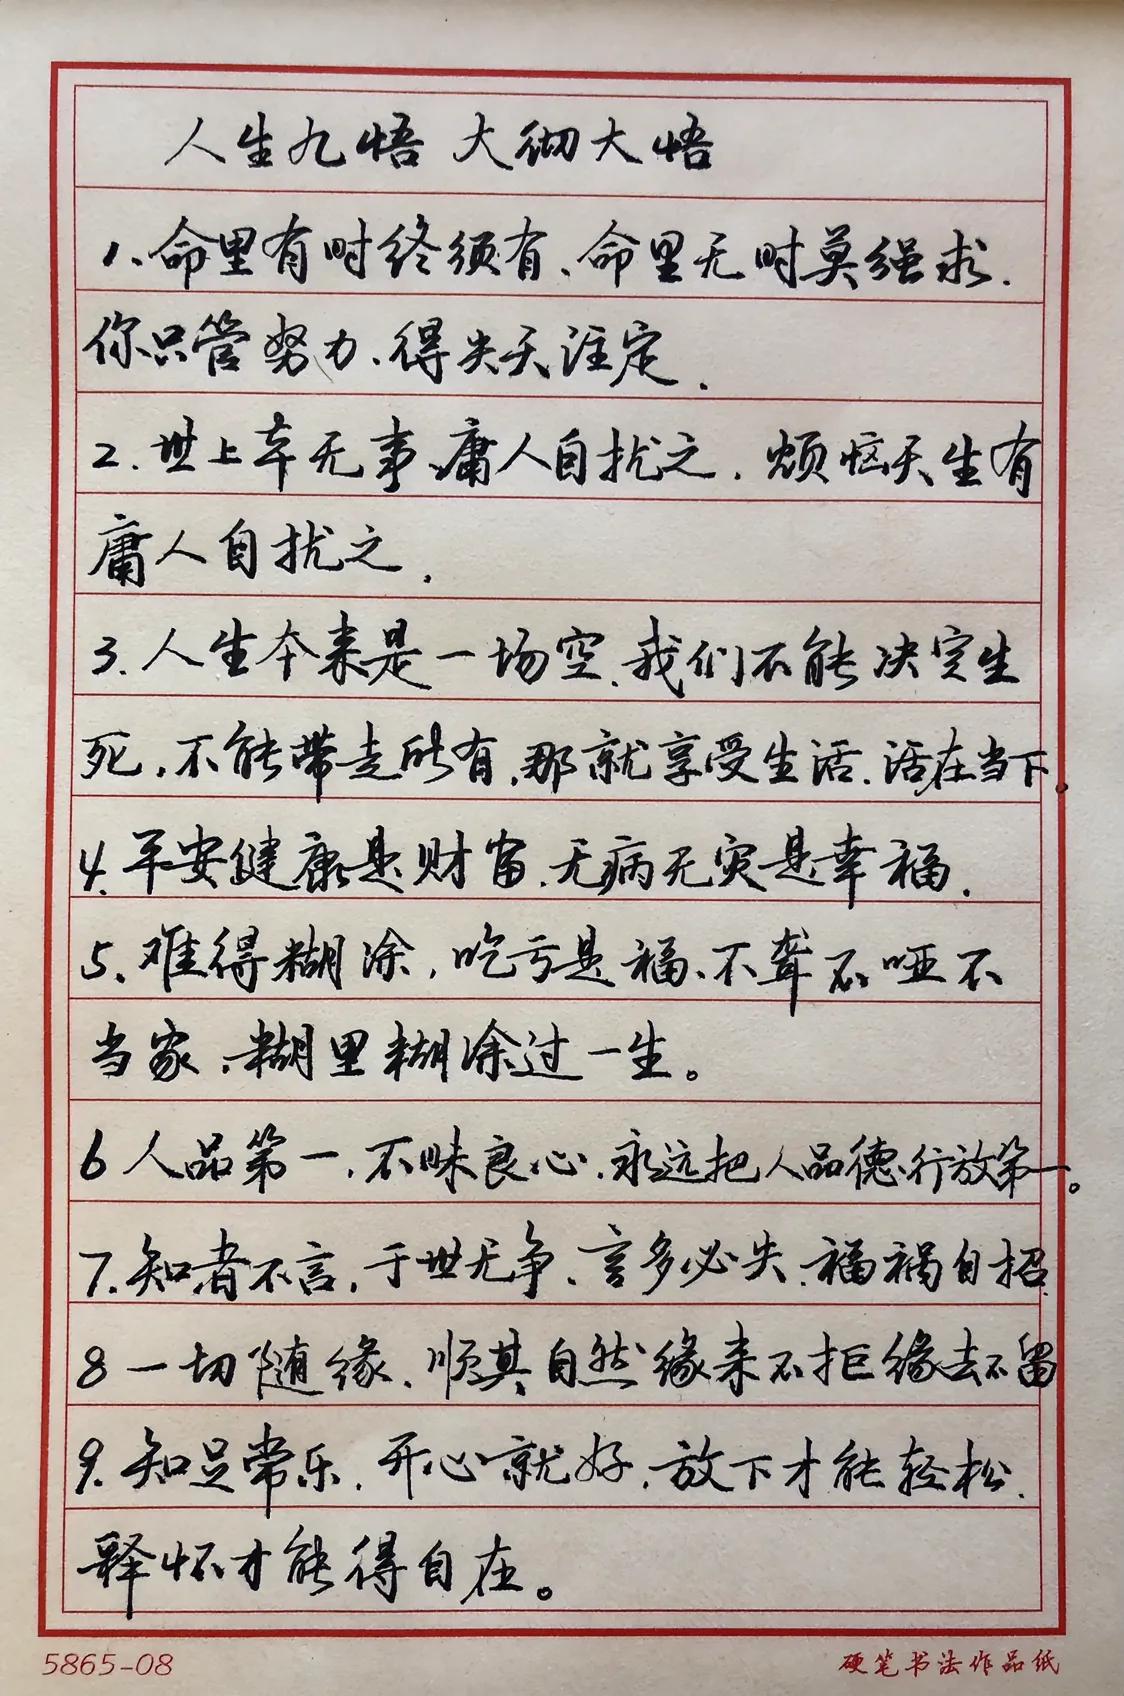 人生九悟 大彻大悟
1、命里有时终须有、命里无时莫强求.
你只管努力、得失天注定.
2.世上本无事、庸人自扰之.烦恼天生有
庸人自扰之.
3.人生本来是一场空.我们不能决定生
死,不能带走所有,那就享受生活.活在当下.
4.平安健康是财富.无病无灾是幸福.
5、难得糊涂,吃亏是福、不聋不哑不
当家.糊里糊涂过一生。
6 人品第一.不昧良心.永远把人品德行放第一。
7.知者不言,于世无争、言多必失.福祸自招.
8 一切随缘.顺其自然缘来不拒缘去不留
9.知足常乐.开心就好.放下才能轻松.
释怀才能得自在。
5865-08
硬笔书法作品纸